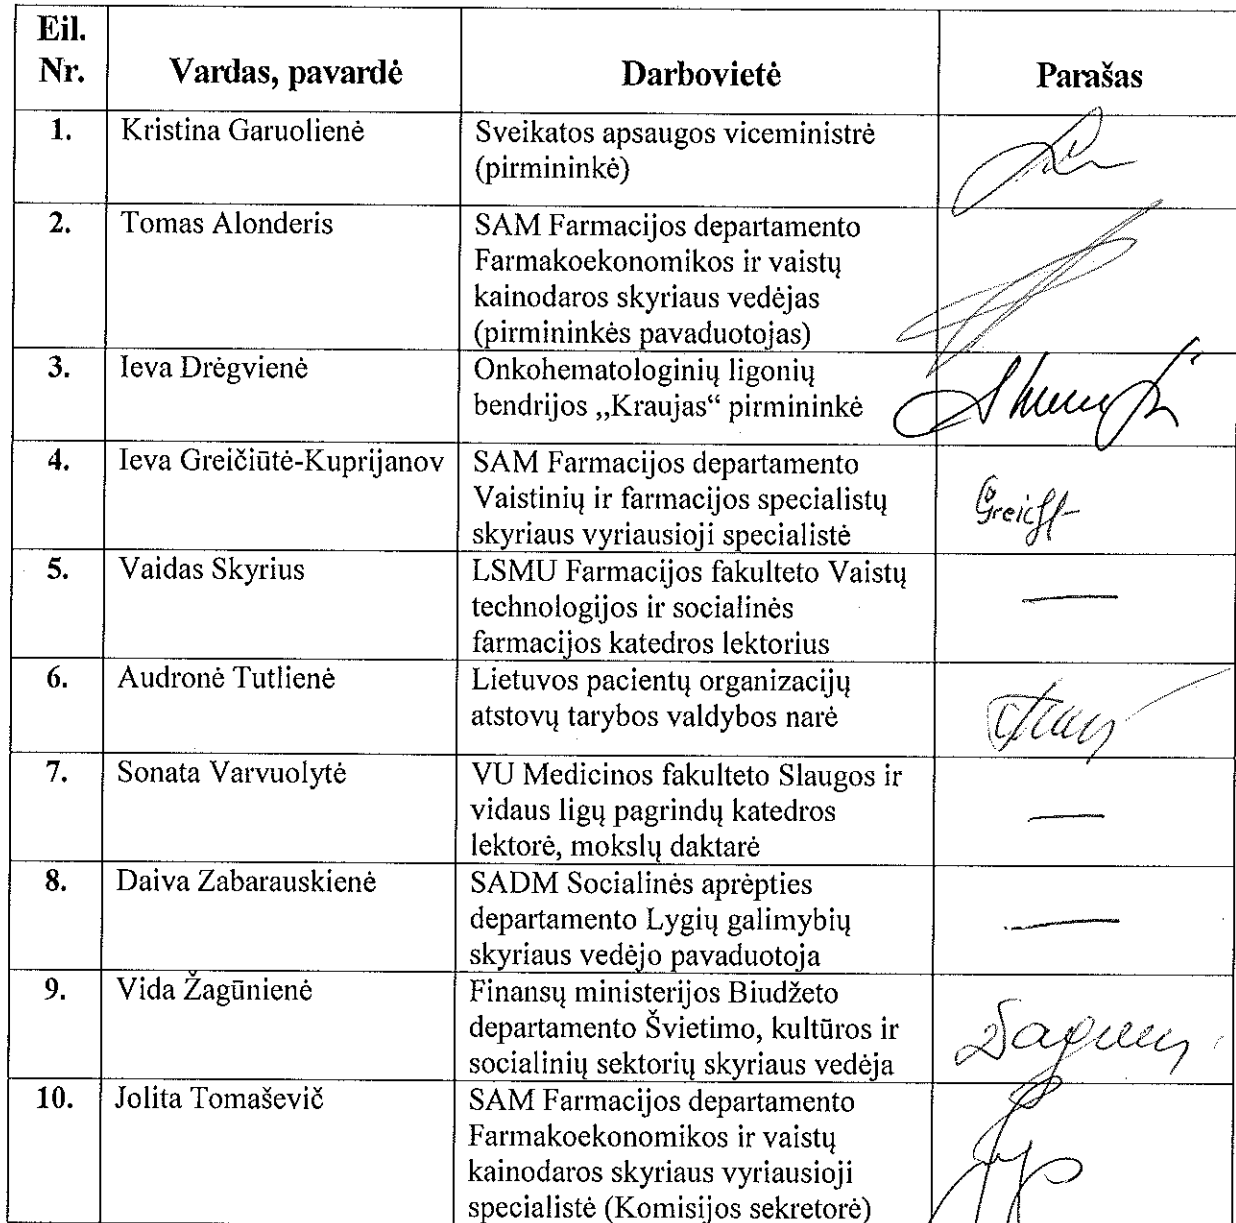 Eil. Nr. Vardas, pavardė Darbovietė Parašas
1. Kristina Garuolienė Sveikatos apsaugos viceministrė
(pirmininkė)
2. Tomas Alonderis SAM Farmacijos departamento
Farmakoekonomikos ir vaistų
kainodaros skyriaus vedėjas
(pirmininkės pavaduotojas)
3. Ieva Drėgvienė Onkohematologinių ligonių
bendrijos „Kraujas“ pirmininkė
4. Ieva Greičiūtė-Kuprijanov SAM Farmacijos departamento
Vaistinių ir farmacijos specialistų
skyriaus vyriausioji specialistė
5. Vaidas Skyrius LSMU Farmacijos fakulteto Vaistų
technologijos ir socialinės
farmacijos katedros lektorius
—
6. Audronė Tutlienė Lietuvos pacientų organizacijų
atstovų tarybos valdybos narė
7. Sonata Varvuolytė VU Medicinos fakulteto Slaugos ir
vidaus ligų pagrindų katedros
lektorė, mokslų daktarė
—
8. Daiva Zabarauskienė SADM Socialinės aprėpties
departamento Lygių galimybių
skyriaus vedėjo pavaduotoja
—
9. Vida Žagūnienė Finansų ministerijos Biudžeto
departamento Švietimo, kultūros ir
socialinių sektorių skyriaus vedėja
10. Jolita Tomaševič SAM Farmacijos departamento
Farmakoekonomikos ir vaistų
kainodaros skyriaus vyriausioji
specialistė (Komisijos sekretorė)